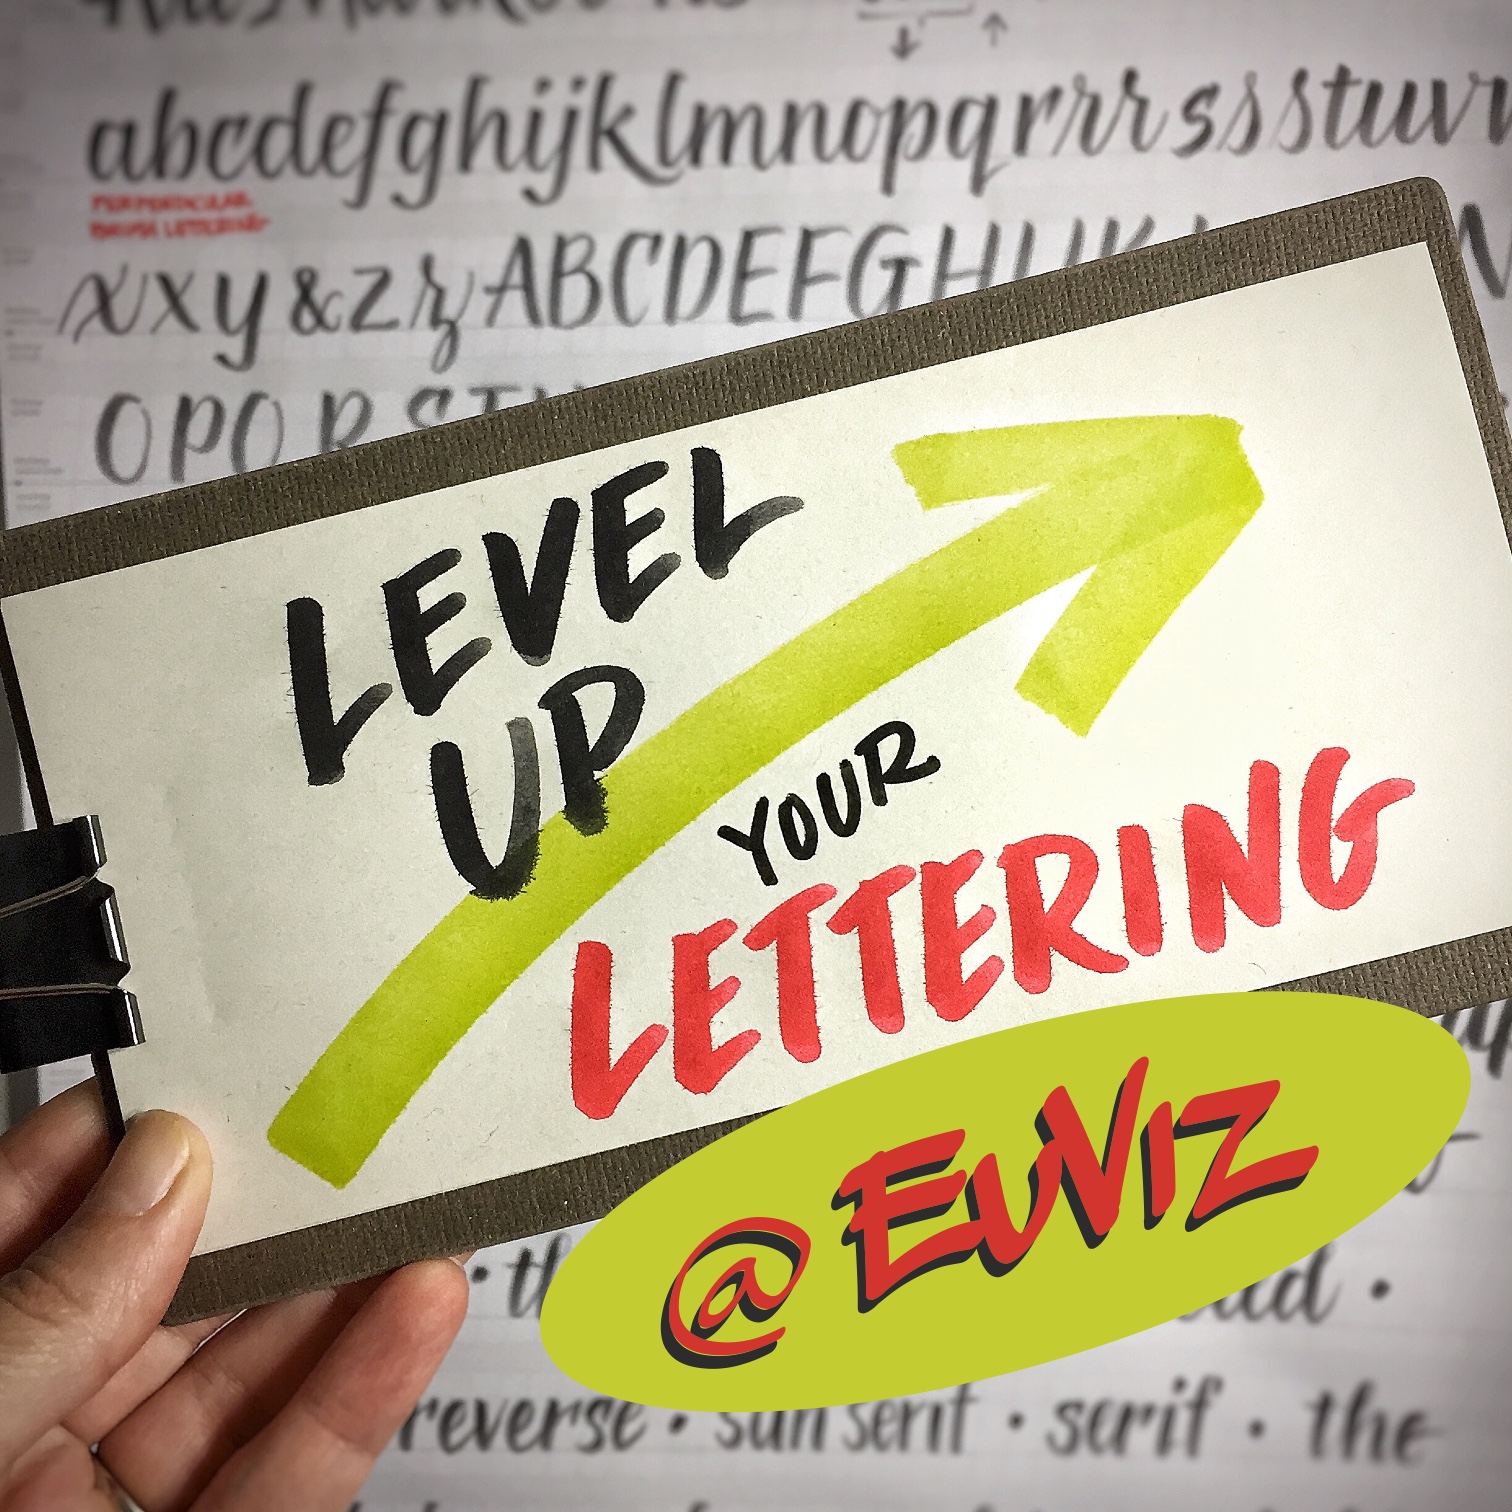 abcdefghijklmnopqrrrssstuv
PERPENDICULAR
BRUSH LETTERING
xxy&zzABCDEFGH
OPQR
LEVEL
UP
YOUR
LETTERING
@ EUVIZ
reverse • sun serif • serif • the